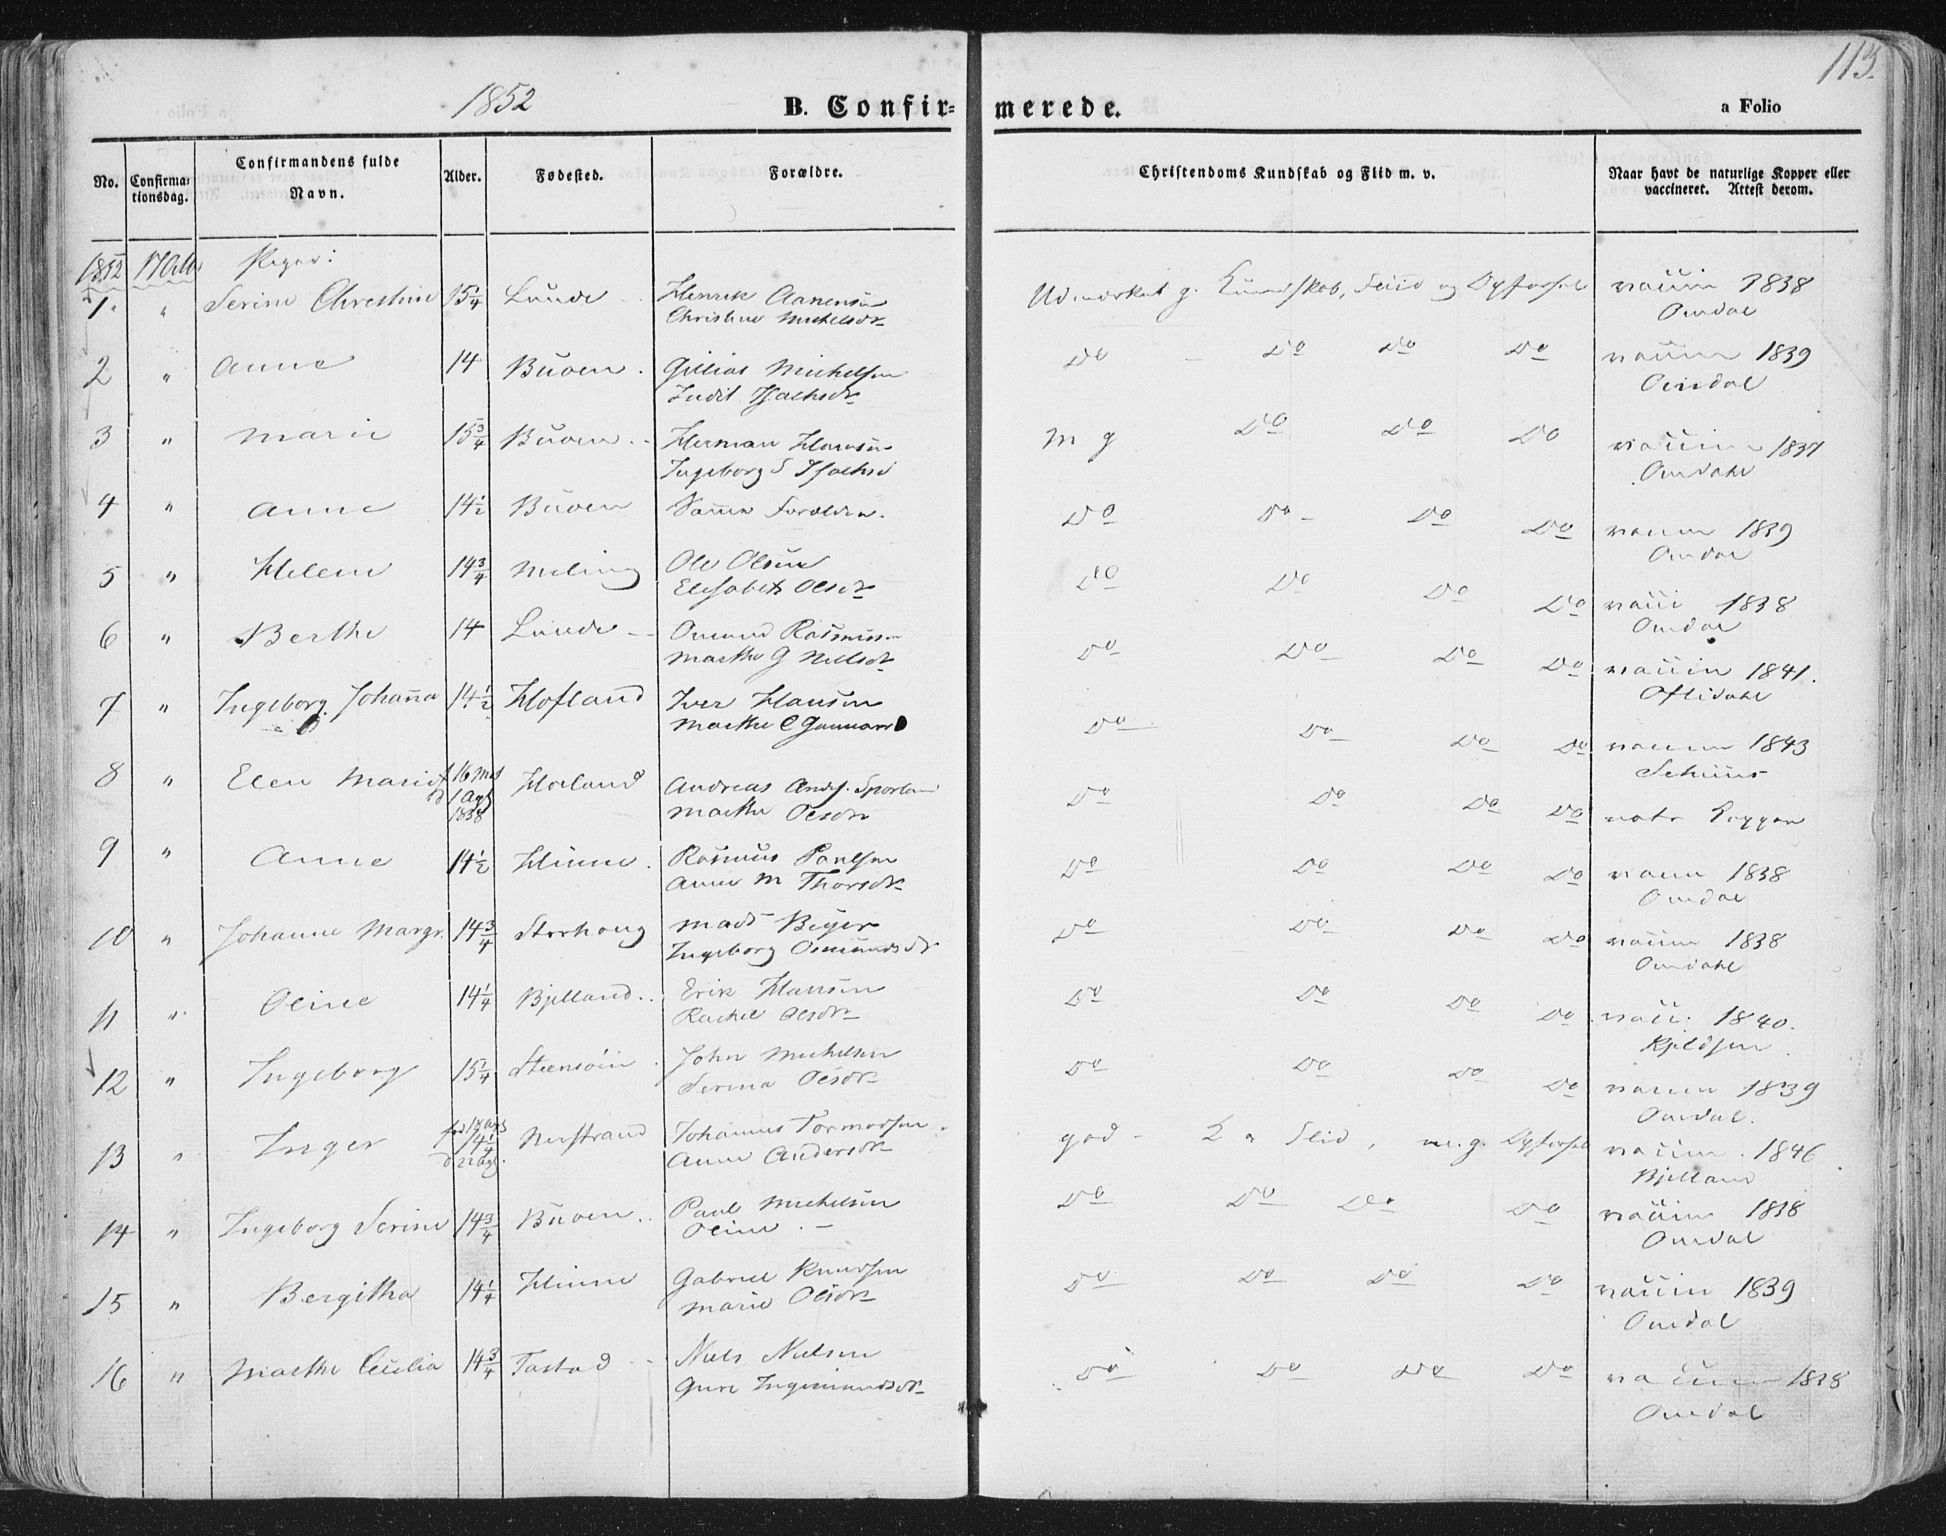 113.
1852 B. Confir= merede. a Folio
No. Confirma= tionsdag. Confirmandens fulde Navn. Alder. Fødested. Forældre. Christendoms Kundskab og Flid m. v. Naar havt de naturlige Kopper eller vaccineret. Attest derom.
1852 17 Octbr Piger:
1. " Serine Christine 15 1/4 Lunde Henrik Aanensen Udmærket g. Kundskab, Flid og Opførsel vaccin 1838
Christine Michelsdr Omdal
2 " Anne 14 Buoen Gilius Michelsen Do Do Do Do vaccin 1839
Judit Isachsdr Omdal
3 " Marie 15 3/4 Buoen Herman Hansen M g Do Do Do vaccin 1837
Ingeborg S Isachsd Omdahl
4 " Anne 14 1/2 Buoen Samme Forældre. Do Do Do Do vaccin 1839
Omdal
5 " Helene 14 3/4 Meling Ole Olsen Do Do Do Do vacci 1838
Elisabeth Olsdr Omdal
6 " Berthe 14 Lunde Omund Rasmussen Do Do Do Do vaccin 1841.
Marthe G Nielsdr Oftidahl
7 " Ingeborg Johanna 14 1/2 Hofland Iver Hansen Do Do Do Do vaccin 1843
Marthe C Gunnars
8 " Elen Marie f 16 Hoeland Andreas Ands. Do Do Do Do natr Kopper
1838 Marthe Olsdr
9 " Anne 14 1/2 Hinne Rasmus Paulsen Do Do Do Do vaccin 1838
Anne M Thorsdr Omdal
10 " Johanne Margr. 14 3/4 Storhoug Mads Beyer Do Do Do Do vaccin 1838
Ingeborg Osmundsdr Omdahl
11 " Oline 14 1/4 Bjelland Erik Hansen Do Do Do Do vacc: 1840.
Rachel Olsdr Kjeldsen
12 " Ingeborg 15 1/4 Steensöin John Michelsen Do Do Do Do vaccin 1839
Serina Olsdr Omdal.
13 " Inger 14 1/4 Nerstrand Johannes Tormodsen god K " Flid, m. g. Opførsel vaccin. 1846
Anne Andersdr Bjelland
14 " Ingeborg Serine 14 3/4 Buoen Paul Michelsen Do Do Do Do vaccin 1838
Oline Omdal
15 " Bergitha 14 1/4 Hinne Gabriel Knudsen Do Do Do Do vaccin 1839
Marie Olsdr Omdal
16 " Marthe Cecilia 14 3/4 Tastad Niels Nielsen Do Do Do Do vaccin 1838
Guro Ingemundsdr Omdal